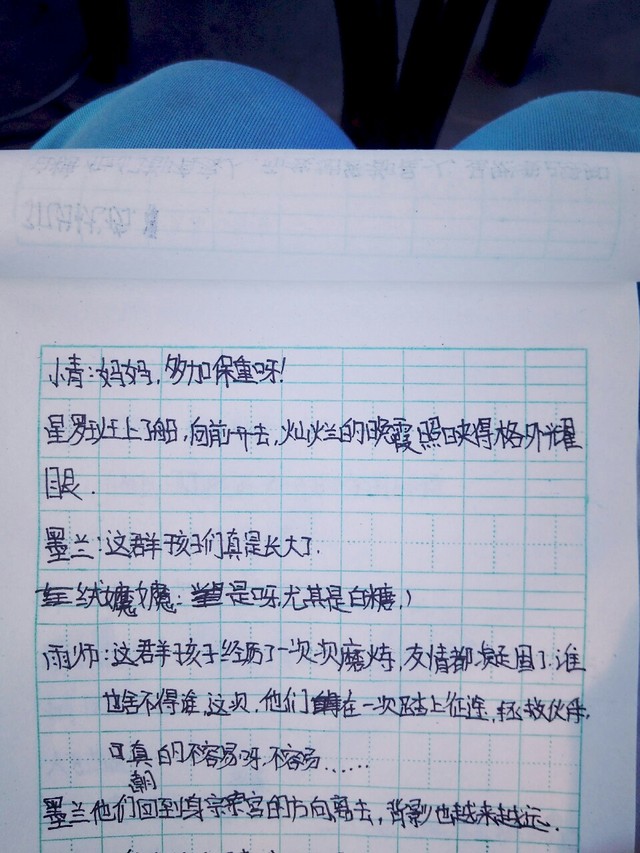 小青：妈妈，多加保重呀！
星罗班上了船，向前开去，灿烂的晚霞照映得格外耀
眼．
墨兰：这群孩子们真是长大了．
红绒嬷嬷：是呀，尤其是白糖，）
雨师：这群孩子经历了一次次磨炼，友情都凝固了．谁
也舍不得谁，这次，他们在一次踏上征途，拯救伙伴．
真的不容易呀，不容易……
墨兰他们回到身宗朝宫的方向离去，背影也越来越远．